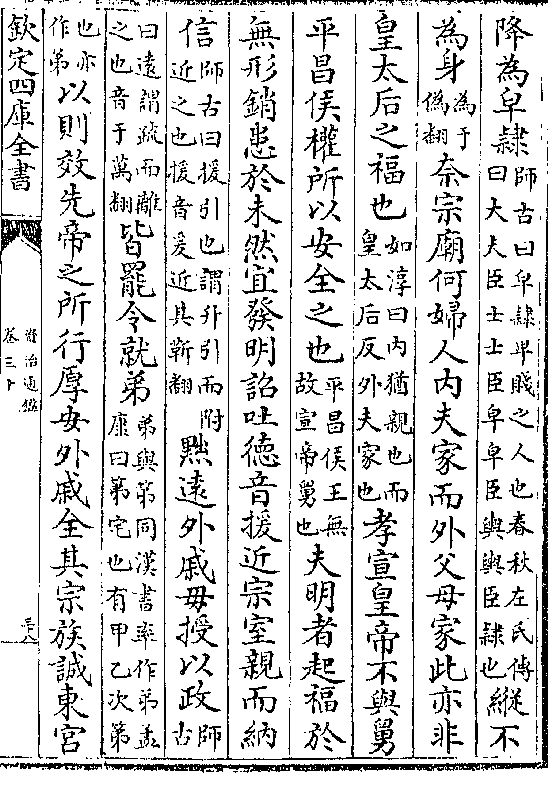 降為皁隸師古曰皁隸卑賤之人也春秋左氏傳曰大夫臣士士臣皁皁臣輿輿臣隸也縱不
為身為于偽翻奈宗廟何婦人内夫家而外父母家此亦非
皇太后之福也如淳曰内猶親也而皇太后反外夫家也孝宣皇帝不與舅
平昌侯權所以安全之也平昌侯王無故宣帝舅也夫明者起福於
無形銷患於未然宜發明詔吐德音援近宗室親而納
信師古曰援引也謂升引而附近之也援音爰近其靳翻黜遠外戚毋授以政師古
曰遠謂疏而離之也音于萬翻皆罷令就弟弟與第同漢書率作弟孟康曰第宅也有甲乙次第
也亦作弟以則效先帝之所行厚安外戚全其宗族誠東宮
欽定四庫全書
資治通鑑
卷三十